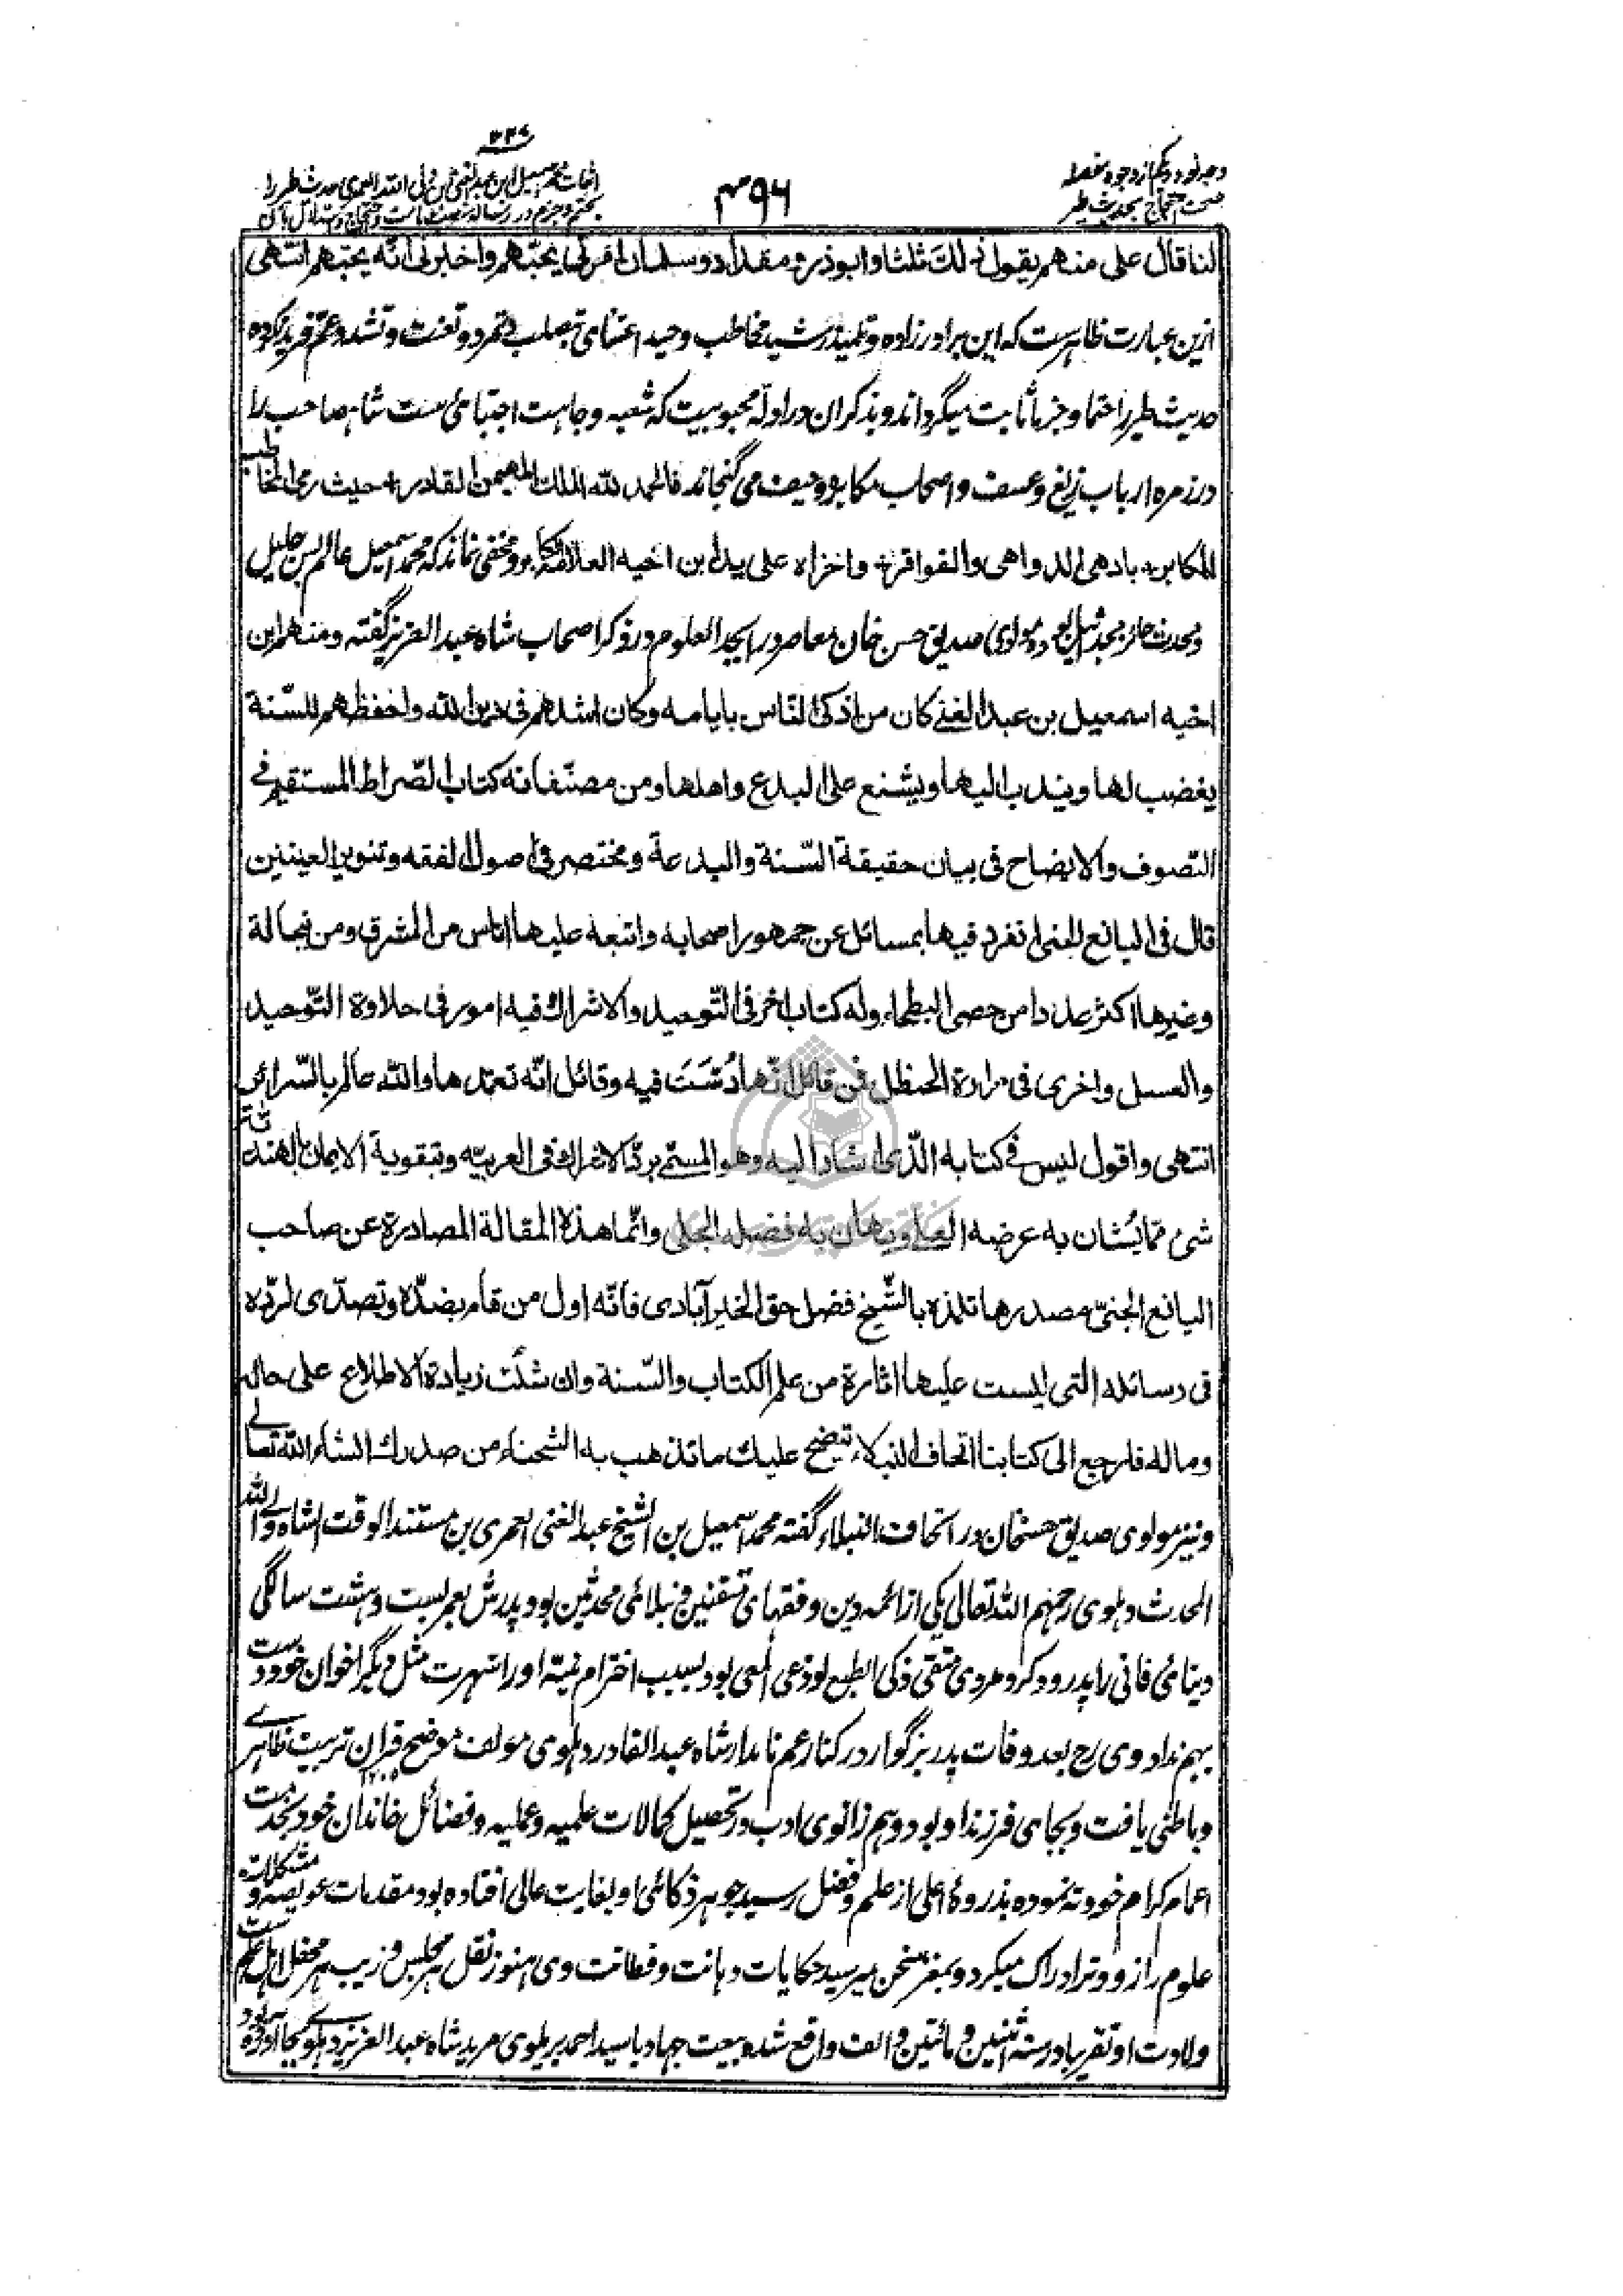 وجه نود و یکم از وجوه
صحت احتجاج بحدیث طیر
۴۹۶
۳۳۷
اثبات محمد اسمعیل ابن عبد الغنی بن ولی الله العمری حدیث طیر را
بحتم و جزم در رساله منصب امامت و احتجاج و استدلال بآن
لنا قال علی منهم یقول ذلك ثلثا وابوذر ومقداد وسلمان امرنی بحبّهم واخبرنی انّه یحبّهم انتهی
ازین عبارت ظاهرست که این برادرزاده و تلمیذ رشید مخاطب وحید اعتنای بتصلب و تمرد و تعنت و تشدد عم فرید نکرده
حدیث طیر را حتما و جزما ثابت میگرداند و بذکر ان در ادلّه محبوبیت که شعبه وجاهت اجتبائی ست شاه صاحب را
در زمره ارباب زیغ و عسف و اصحاب مکابره و حیف می گنجاند فالحمد لله الملك المهیمن القادر حیث رمی المخاطب
المکابر بادهی الدواهی والفواقر واخزاه علی ید ابن اخیه العلامة المکابر و مخفی نماند که محمد اسمعیل عالم بس جلیل
و محدث حائز مجد اثیل بوده مولوی صدیق حسن خان معاصر در ابجد العلوم در ذکر اصحاب شاه عبد العزیز گفته ومنهم ابن
اخیه اسمعیل بن عبد الغنی کان من اذکی النّاس بایامه وکان اشدهم فی دین الله واحفظهم للسّنة
یغضب لها ویندب الیها ویشنع علی البدع واهلها ومن مصنّفاته کتاب الصّراط المستقیم فی
التّصوف والایضاح فی بیان حقیقة السّنة والبدعة ومختصر فی اصول الفقه وتنویر العینین
قال فی الیانع الجنی انفرد فیها بمسائل عن جمهور اصحابه واتبعه علیها اناس من المشرق ومن بنجالة
وغیرها اکثر عددا من حصی البطحاء وله کتاب اخر فی التّوحید والاشراك فیه امور فی حلاوة التّوحید
والعسل واخری فی مرارة الحنظل فمن قائل انّها دُسَّتْ فیه وقائل انّه تعمّدها والله عالم بالسّرائر
انتهی واقول لیس فی کتابه الّذی اشار الیه وهو المسمّی بردّ الاشراك فی العربیّه وبتقویة الایمان بالهندیّة
شئ ممّا یُشان به عرضه العلی ویهان به فضله الجلی وانّما هذه المقالة الصادرة عن صاحب
الیانع الجنیّ مصدرها تلمذه بالشّیخ فضل حق الخیرآبادی فانّه اول من قام بضدّه وتصدّی لردّه
فی رسائله التی لیست علیها اثارة من علم الکتاب والسّنة وان شئت زیادة الاطلاع علی حاله
وماله فارجع الی کتابنا اتحاف النبلاء یتضح علیك ما تذهب به الشحناء من صدرك انشاء الله تعالی
و نیز مولوی صدیق حسنخان در اتحاف النبلاء گفته محمد اسمعیل بن الشیخ عبد الغنی العمری بن مستند الوقت الشاه ولی الله
المحدث دهلوی رحمهم الله تعالی یکی از ائمه دین و فقهای متقنین و نبلائی محدثین بود پدرش بعمر بست و هشت سالگی
دینائی فانی را پدرود کرد مردی متقی ذکی الطبع لوذعی المعی بود بسبب اخترام منیّه او را شهرت مثل دیگر اخوان خود دست
بهم نداد وی رح بعد وفات پدر بزرگوار در کنار عم نامدار شاه عبد القادر دهلوی مولف موضح قران تربیت ظاهری
۱۲۰۵
و باطنی یافت و بجای فرزند او بود و هم زانوی ادب در تحصیل کمالات علمیه و عملیه و فضائل خاندان خود بخدمت
اعمام کرام خود ته نموده بذروۀ اعلی از علم و فضل رسید جوهر ذکائی او بغایت عالی افتاده بود مقدمات عویصه و مشکلات
علوم را زودتر ادراک میکرد و بمغز سخن میرسید حکایات دهانت و فطانت وی هنوز نقل هر مجلس و زیب هر محفل اهل علم ست
ولادت او تقریبا در سنه اثنین و مائتین و الف واقع شده بیعت جهاد با سید احمد بریلوی مرید شاه عبد العزیز دهلوی بجا آورده